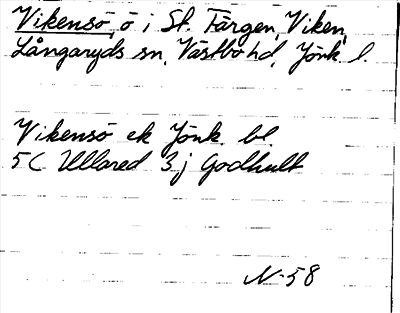 Vikensö, ö i St. Färgen, Viken,
Långaryds sn, Västbo hd, Jönk. l.
Vikensö ek Jönk. bl.
5C Ullared 3j Godhult
N-58